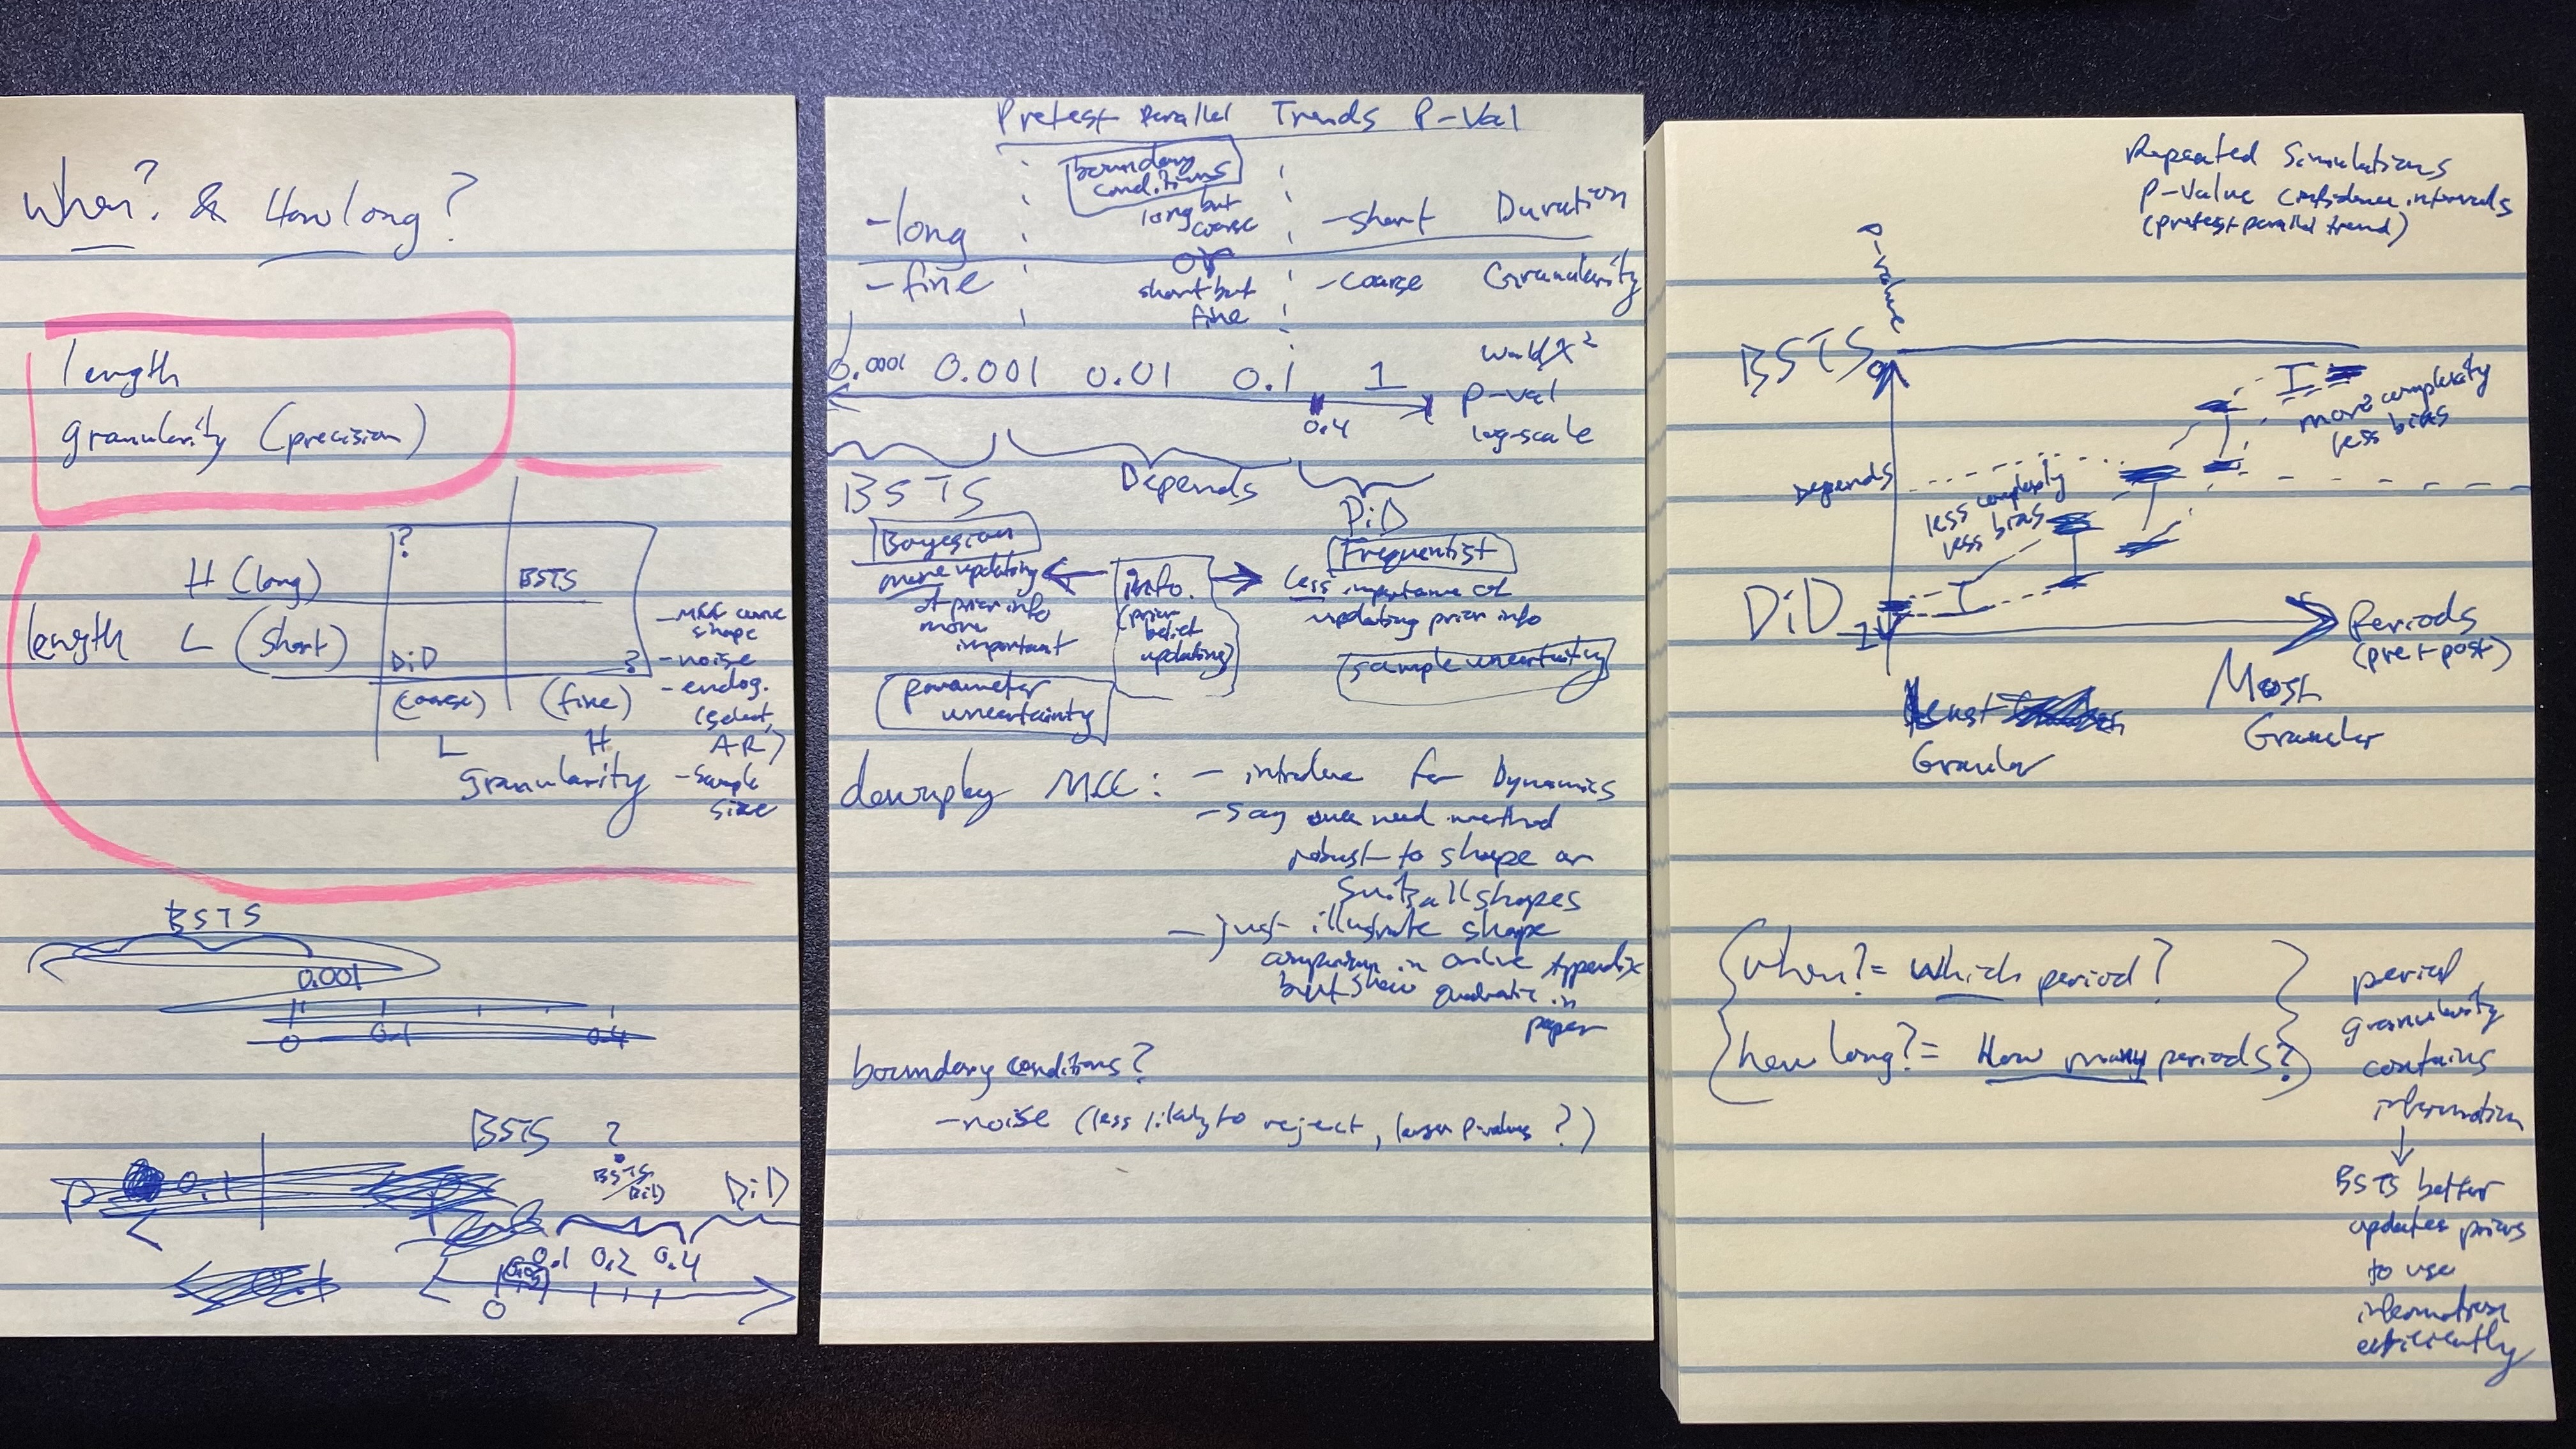 When? & How long?
length
granularity (precision)
?
H (long)
BSTS
length L (short)
DiD
?
(coarse) (fine)
L H
granularity
- MCC curve
shape
- noise
- endog.
(select,
AR)
- sample
size
BSTS
0.001
0 0.1 0.4
BSTS ?
P 0.1
BSTS/
DiD
DiD
0.1 0.2 0.4
0.05
0
0.1
Pretest Parallel Trends P-Val
boundary
conditions
- long
long but
coarse
- short Duration
or
- fine
short but
fine
- coarse Granularity
0.0001 0.001 0.01 0.1 1
Wald/χ²
P-val
log-scale
0.4
BSTS
Depends
DiD
Bayesian
more updating
of prior info
more
important
info.
(prior
belief
updating)
Frequentist
less importance of
updating prior info
parameter
uncertainty
sample uncertainty
downplay MCC: - introduce for Dynamics
- say need method
robust to shape or
suits all shapes
- just illustrate shape
comparison in online Appendix
but show quadratic in
paper
boundary conditions?
- noise (less likely to reject, larger p-values?)
Repeated Simulations
P-Value confidence intervals
(pretest parallel trend)
P-value
BSTS 0
more complexity
less bias
Depends
less complexity
less bias
DiD 1
Periods
(pre + post)
Least
Granular
Most
Granular
when? = Which period?
how long? = How many periods?
period
granularity
contains
information
↓
BSTS better
updates priors
to use
information
efficiently